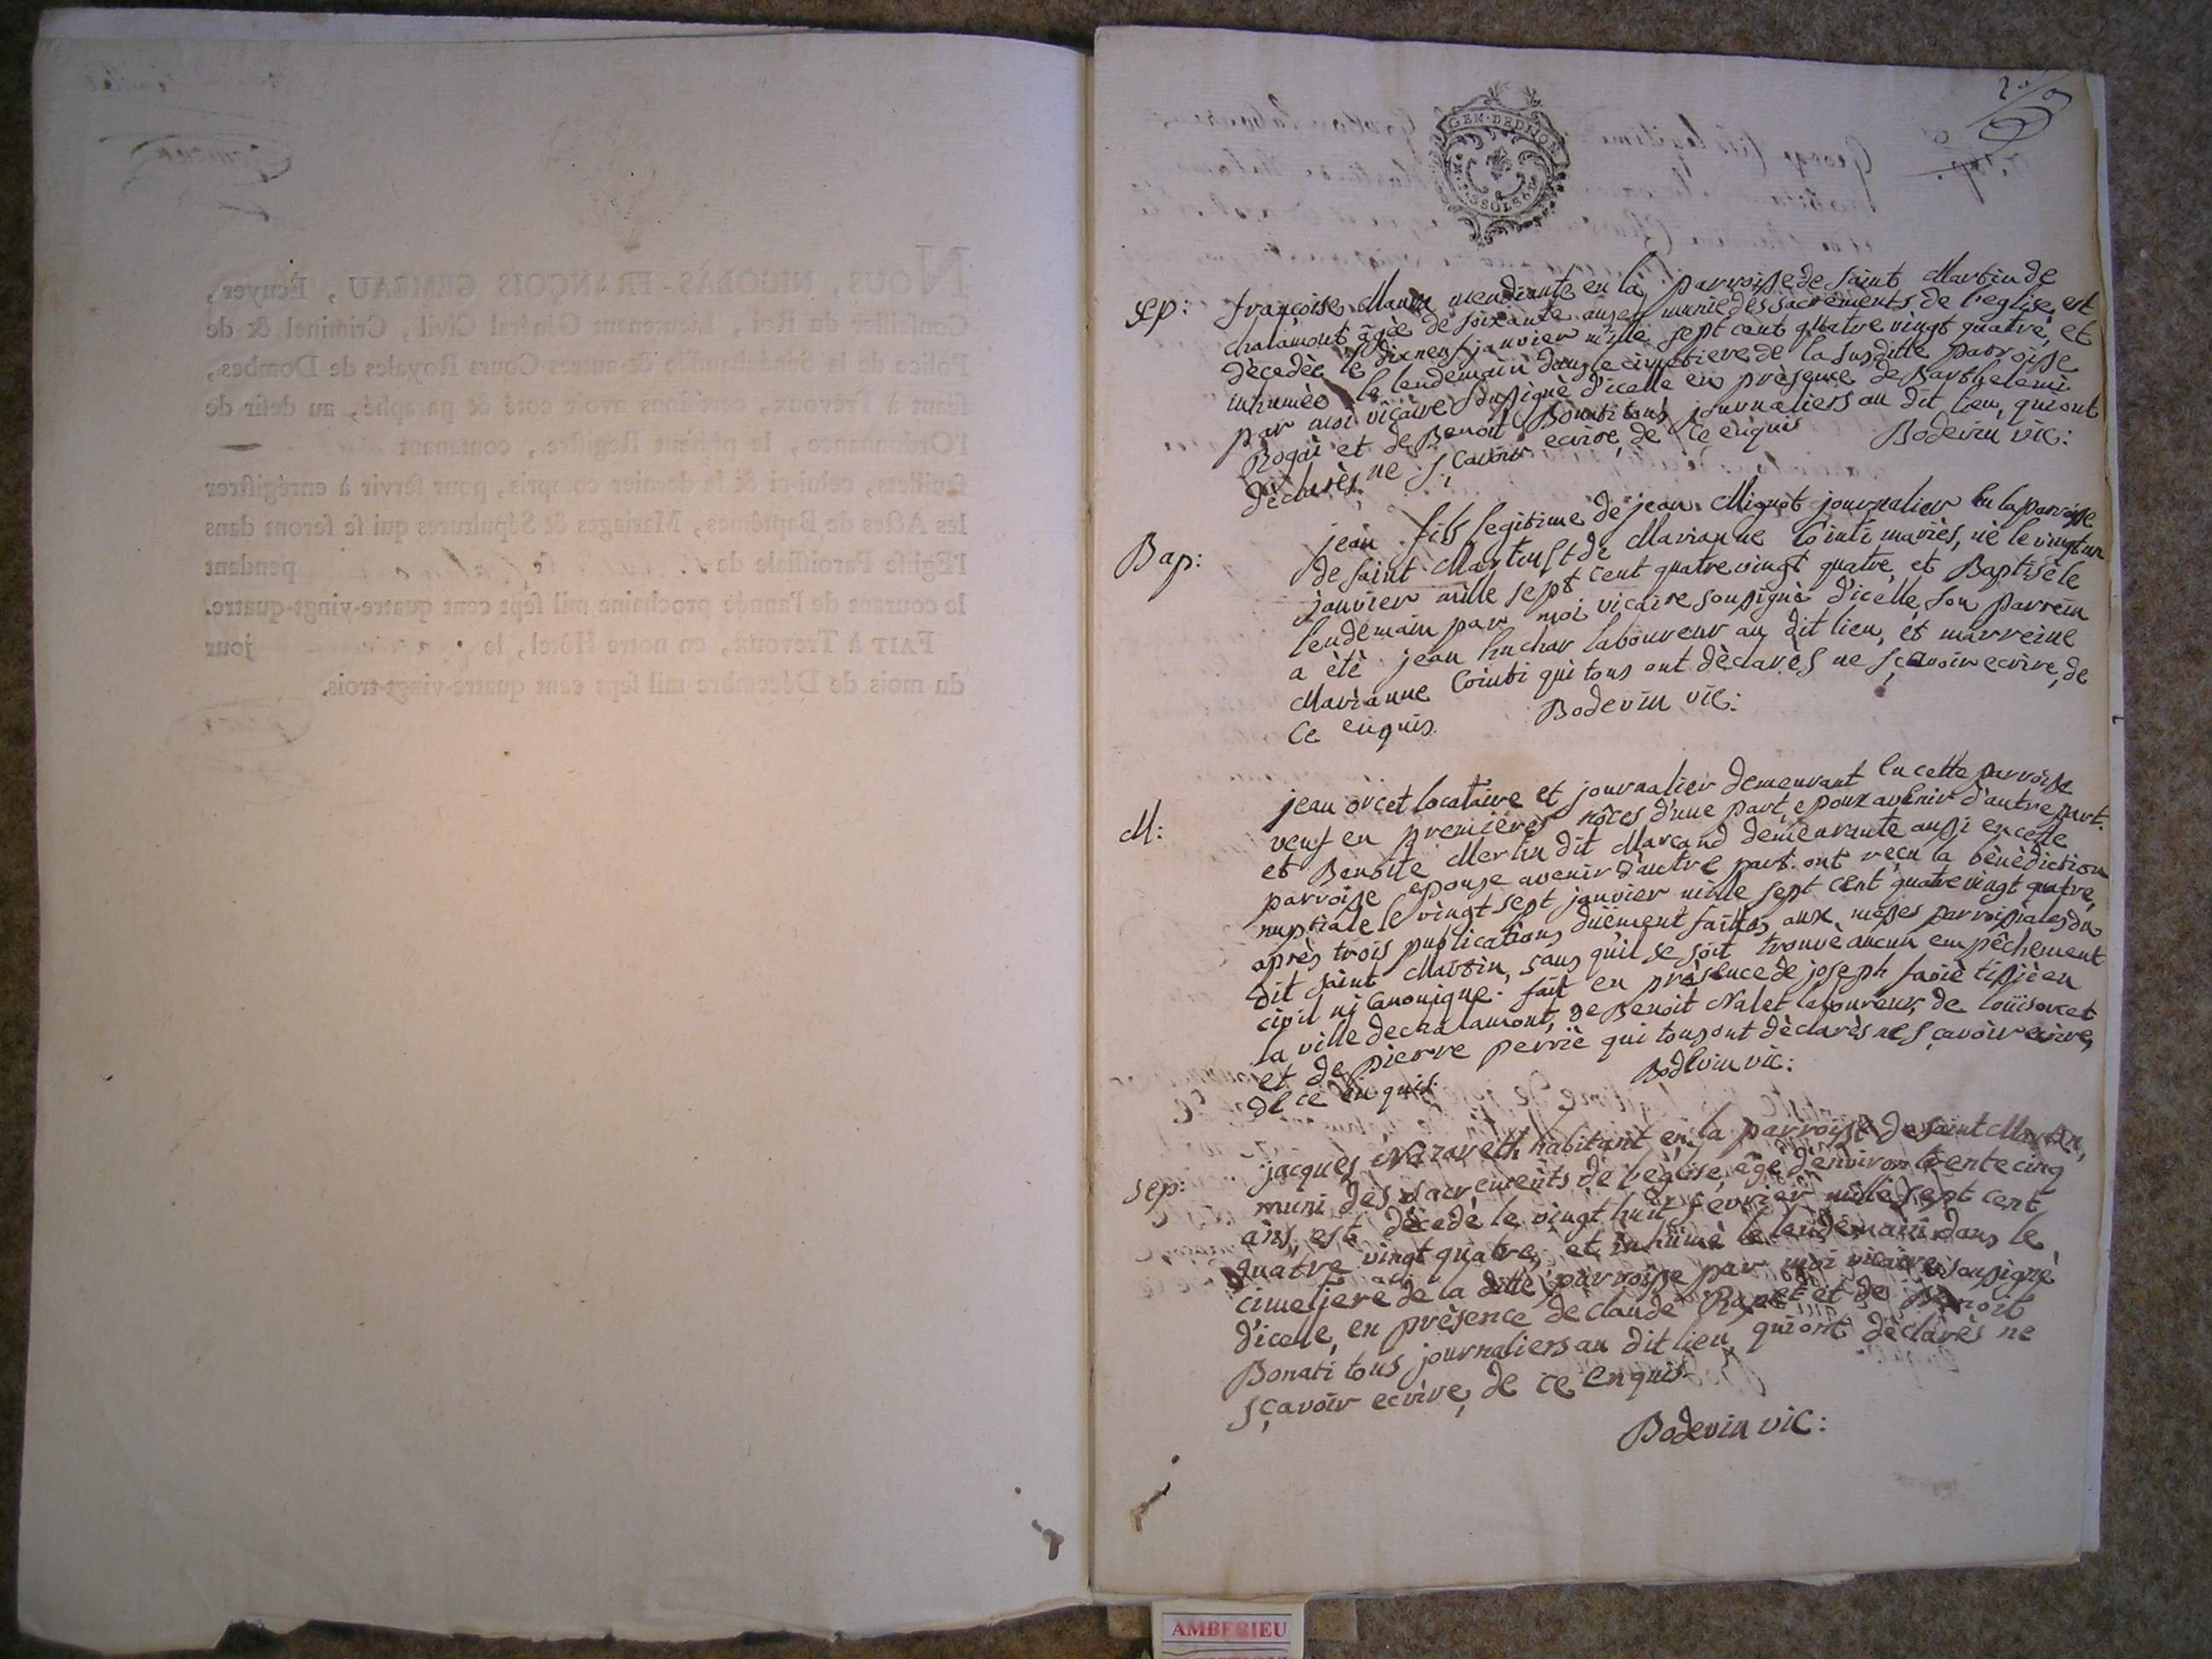 NOUS, NICOLAS-FRANÇOIS GEMEAU, Écuyer,
Conseiller du Roi, Lieutenant Général Civil, Criminel & de
Police de la Sénéchaussée & autres Cours Royales de Dombes,
séant à Trévoux, certifions avoir coté & paraphé, au desir de
l'Ordonnance, le présent Registre, contenant
feuillets, celui-ci & le dernier compris, pour servir à enrégistrer
les Actes de Baptêmes, Mariages & Sépultures qui se feront dans
l'Eglise Paroissiale de pendant
le courant de l'année prochaine mil sept cent quatre-vingt-quatre.
FAIT à Trévoux, en notre Hôtel, le jour
du mois de Décembre mil sept cent quatre-vingt-trois.
GEN·DEDIJON
sep: françoise mendiante en la parroisse de saint Martin de
chalamont âgée de soixante ans munie des sacrements de l'eglise, est
décedée le dixneuf janvier mille sept cent quatre vingt quatre, et
inhumée le lendemain dans le cimetiere de la susditte parroisse
par moi vicaire soussigné d'icelle en présence de Barthelemi
Rogai et de Benoit Bonati tous journaliers au dit lieu, qui ont
déclarés ne sçavoir ecrire, de ce enquis Bodevin vic:
Bap: jean fils legitime de jean Mignot journalier en la parroisse
de saint Martin et de Marianne Cointi mariés, né le vingt un
janvier mille sept cent quatre vingt quatre, et Baptisé le
lendemain par moi vicaire soussigné d'icelle, son parrein
a été jean huchar laboureur au dit lieu, et marreine
Marianne Cointi qui tous ont déclarés ne sçavoir ecrire, de
ce enquis. Bodevin vic:
M: jean orcet locataire et journalier demeurant en cette parroisse
veuf en premieres nôces d'une part, epoux avenir d'autre part.
et Benoite Merlin dit Marcand demeurante aussi en cette
parroisse epouse avenir d'autre part. ont reçu la bénédiction
nuptiale le vingt sept janvier mille sept cent quatre vingt quatre,
après trois publications duëment faittes aux messes parroissiales du
dit saint Martin, sans qu'il se soit trouvé aucun empêchement
civil ni Canonique. fait en présence de joseph favié tissié en
la ville de chalamont, de Benoit Nalet laboureur, de loüis orcet
et de pierre perrié qui tous ont déclarés ne sçavoir ecrire,
de ce enquis. Bodevin vic:
sep: jacques Nazareth habitant en la parroisse de saint Martin,
muni des sacrements de l'église, âgé d'environ trente cinq
ans, est décedé le vingt huit fevrier mille sept cent
quatre vingt quatre, et inhumé le lendemain dans le
cimetiere de la ditte parroisse par moi vicaire soussigné
d'icelle, en présence de claude Rapet et de Benoit
Bonati tous journaliers au dit lieu, qui ont déclarés ne
sçavoir ecrire, de ce enquis.
Bodevin vic:
AMBERIEU